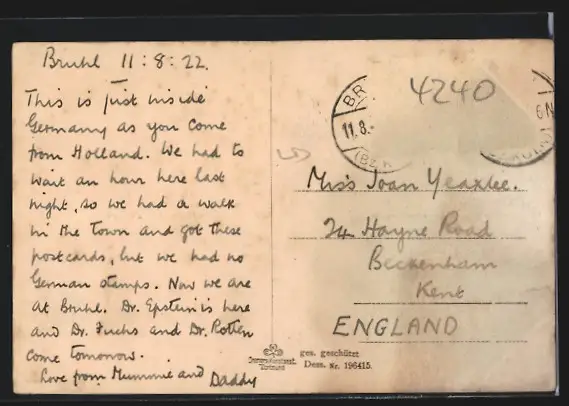 Bruhl 11:8:22.
This is just inside
Germany as you come
from Holland. We had to
wait an hour here last
night, so we had a walk
in the town and got these
postcards, but we had no
German stamps. Now we are
at Bruhl. Dr. Epstein is here
and Dr. Fuchs and Dr. Rotten
come tomorrow.
Love from Mummie and Daddy
4240
BR
11.8.
6N
Miss Joan Yeaxlee.
24 Hayne Road
Beckenham
Kent
ENGLAND
ges. geschützt
Dess. Nr. 196415.